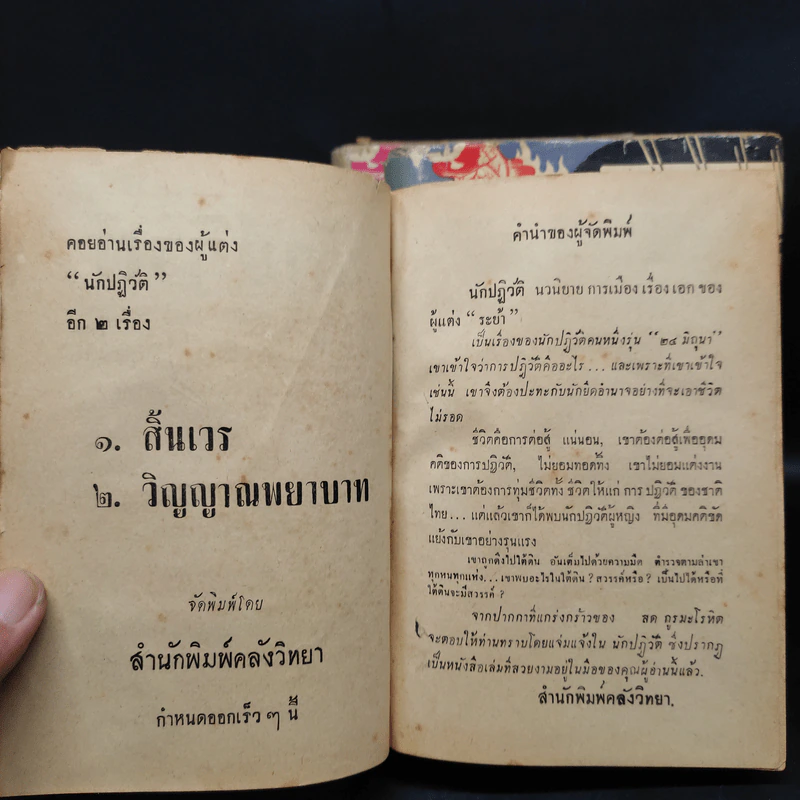 คอยอ่านเรื่องของผู้แต่ง
“นักปฏิวัติ”
อีก ๒ เรื่อง
๑. สิ้นเวร
๒. วิญญาณพยาบาท
จัดพิมพ์โดย
สำนักพิมพ์คลังวิทยา
กำหนดออกเร็ว ๆ นี้
คำนำของผู้จัดพิมพ์
นักปฏิวัติ นวนิยาย การเมือง เรื่อง เอก ของ
ผู้แต่ง “ระย้า”
เป็นเรื่องของนักปฏิวัติคนหนึ่งรุ่น “๒๔ มิถุนา”
เขาเข้าใจว่าการ ปฏิวัติคืออะไร ... และเพราะที่เขาเข้าใจ
เช่นนี้ เขาจึงต้องปะทะกับนักยึดอำนาจอย่างที่จะเอาชีวิต
ไม่รอด
ชีวิตคือการต่อสู้ แน่นอน, เขาต้องต่อสู้เพื่ออุดม
คติของการปฏิวัติ, ไม่ยอมทอดทิ้ง เขาไม่ยอมแต่งงาน
เพราะเขาต้องการทุ่มชีวิตทั้ง ชีวิตให้แก่ การ ปฏิวัติ ของชาติ
ไทย... แต่แล้วเขาก็ได้พบนักปฏิวัติผู้หญิง ที่มีอุดมคติขัด
แย้งกับเขาอย่างรุนแรง
เขาถูกดึงไปใต้ดิน อันเต็มไปด้วยความมืด ตำรวจตามล่าเขา
ทุกหนทุกแห่ง... เขาพบอะไรในใต้ดิน? สวรรค์หรือ? เป็นไปได้หรือที่
ใต้ดินจะมีสวรรค์?
จากปากกาที่แกร่งกร้าวของ สด กูรมะโรหิต
จะตอบให้ท่านทราบโดยแจ่มแจ้งใน นักปฏิวัติ ซึ่งปรากฏ
เป็นหนังสือเล่มที่สวยงามอยู่ในมือของคุณผู้อ่านนี้แล้ว.
สำนักพิมพ์คลังวิทยา.